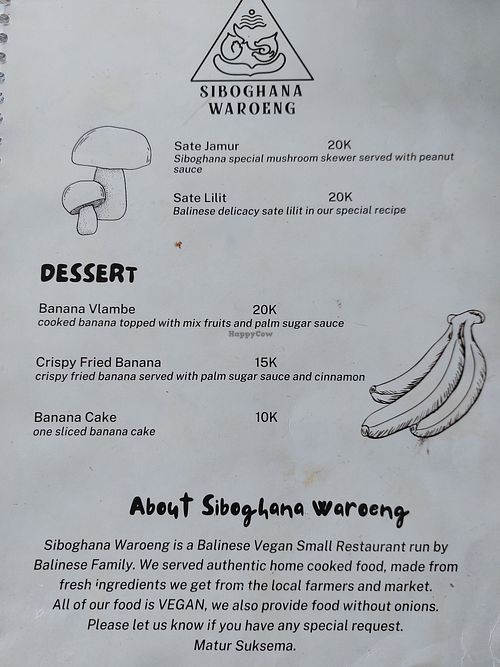 SIBOGHANA
WAROENG
Sate Jamur 20K
Siboghana special mushroom skewer served with peanut
sauce
Sate Lilit 20K
Balinese delicacy sate lilit in our special recipe
DESSERT
Banana Vlambe 20K
cooked banana topped with mix fruits and palm sugar sauce
HappyCow
Crispy Fried Banana 15K
crispy fried banana served with palm sugar sauce and cinnamon
Banana Cake 10K
one sliced banana cake
About Siboghana Waroeng
Siboghana Waroeng is a Balinese Vegan Small Restaurant run by
Balinese Family. We served authentic home cooked food, made from
fresh ingredients we get from the local farmers and market.
All of our food is VEGAN, we also provide food without onions.
Please let us know if you have any special request.
Matur Suksema.